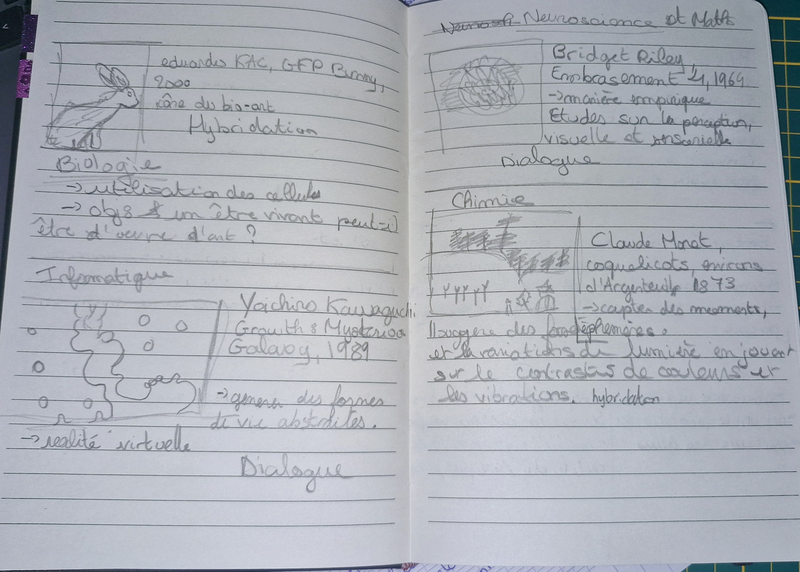 eduardos KAC, GFP Bunny,
2000
icône du bio-art
Hybridation
Biologie
→ utilisation des cellules
→ un être vivant peut-il
être d'œuvre d'art ?
Informatique
Yoichiro Kawaguchi
Growth : Mysterious
Galaxy, 1989
→ générer des formes
de vie abstraites.
→ réalité virtuelle
Dialogue
Neuroscience et Maths
Bridget Riley,
Embrasement 1, 1964
→ manière empirique
Etudes sur la perception,
visuelle et sensorielle
Dialogue
Chimie
Claude Monet,
coquelicots, environs
d'Argenteuil 1873
→ capter des moments,
éphémères.
et la variations de lumière en jouant
sur le contrastes de couleurs et
les vibrations. hybridation